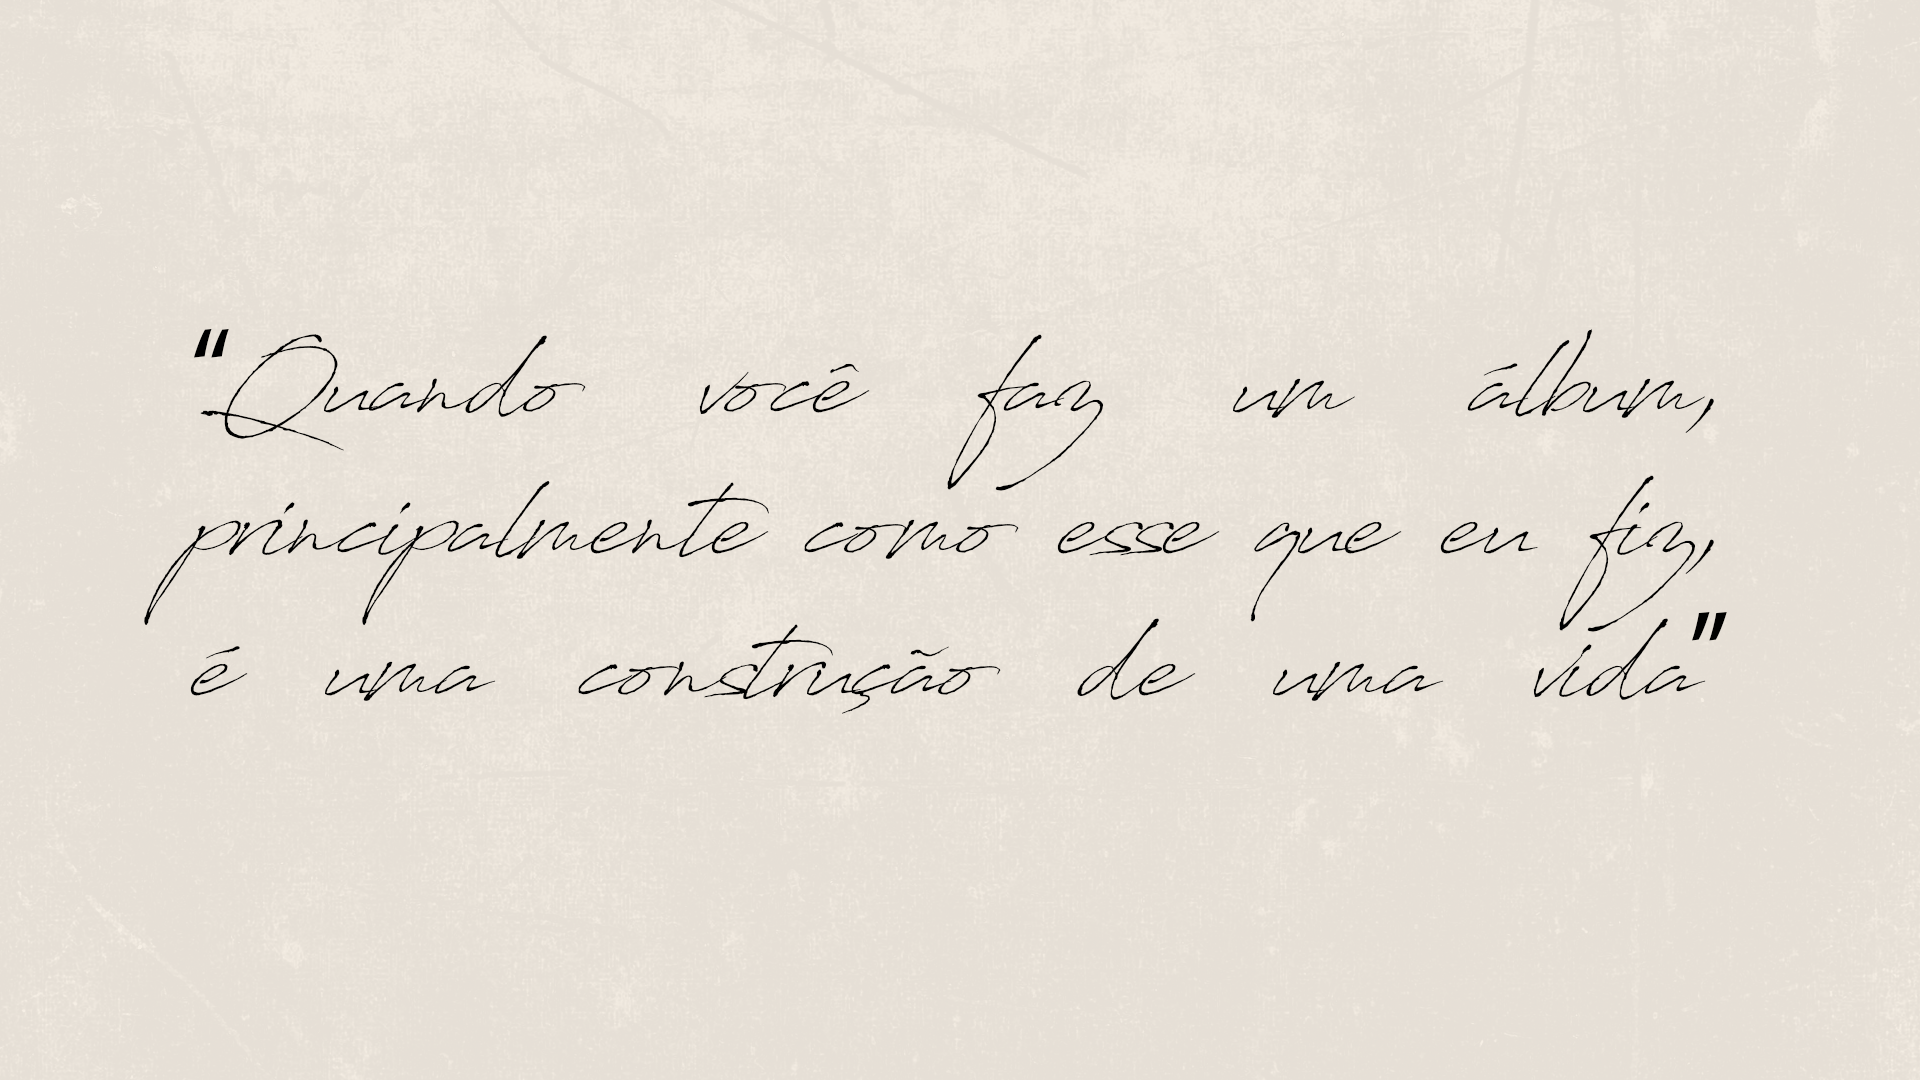 "Quando você faz um álbum,
principalmente como esse que eu fiz,
é uma construção de uma vida"